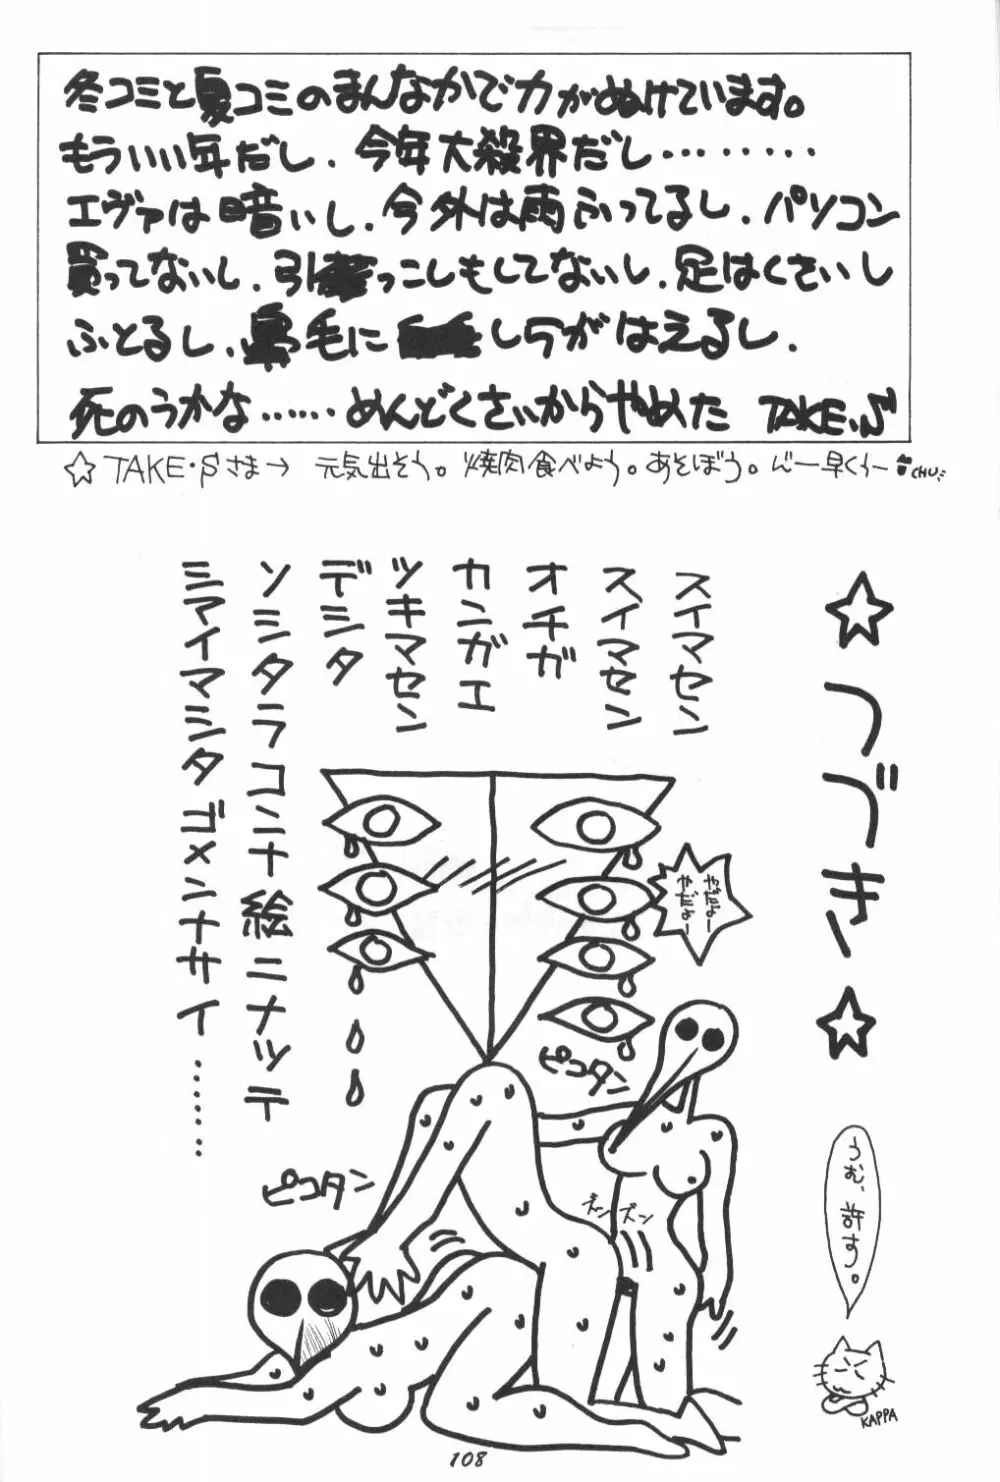 冬コミと夏コミのまんなかで力がぬけています。
もういい年だし、今年大殺界だし………
エヴァは暗いし、今外は雨ふってるし、パソコン
買ってないし、引っこしもしてないし、足はくさいし
ふとるし、鼻毛にしらがはえるし、
死のうかな……めんどくさいからやめた TAKE・S
☆TAKE・Sさま→ 元気出そう。焼肉食べよう。あそぼう。ん〜早くぅ〜 CHU
☆つづき☆
スイマセン
スイマセン
オチガ
カンガエ
ツキマセン
デシタ
ソシタラコンナ絵ニナッテ
シマイマシタゴメンナサイ……
やだよー
やだよー
ピコタン
ピコタン
ズン
ズン
うむ、許す。
KAPPA
108